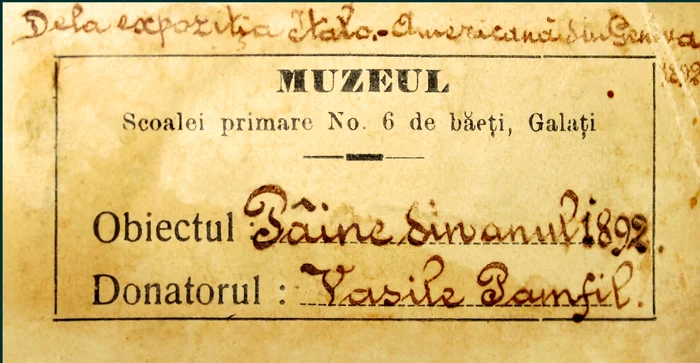 Dela expoziția Italo-Americană din Genova
1892
MUZEUL
Scoalei primare No. 6 de băeți, Galați
Obiectul : Pâine din anul 1892.
Donatorul : Vasile Pamfil.